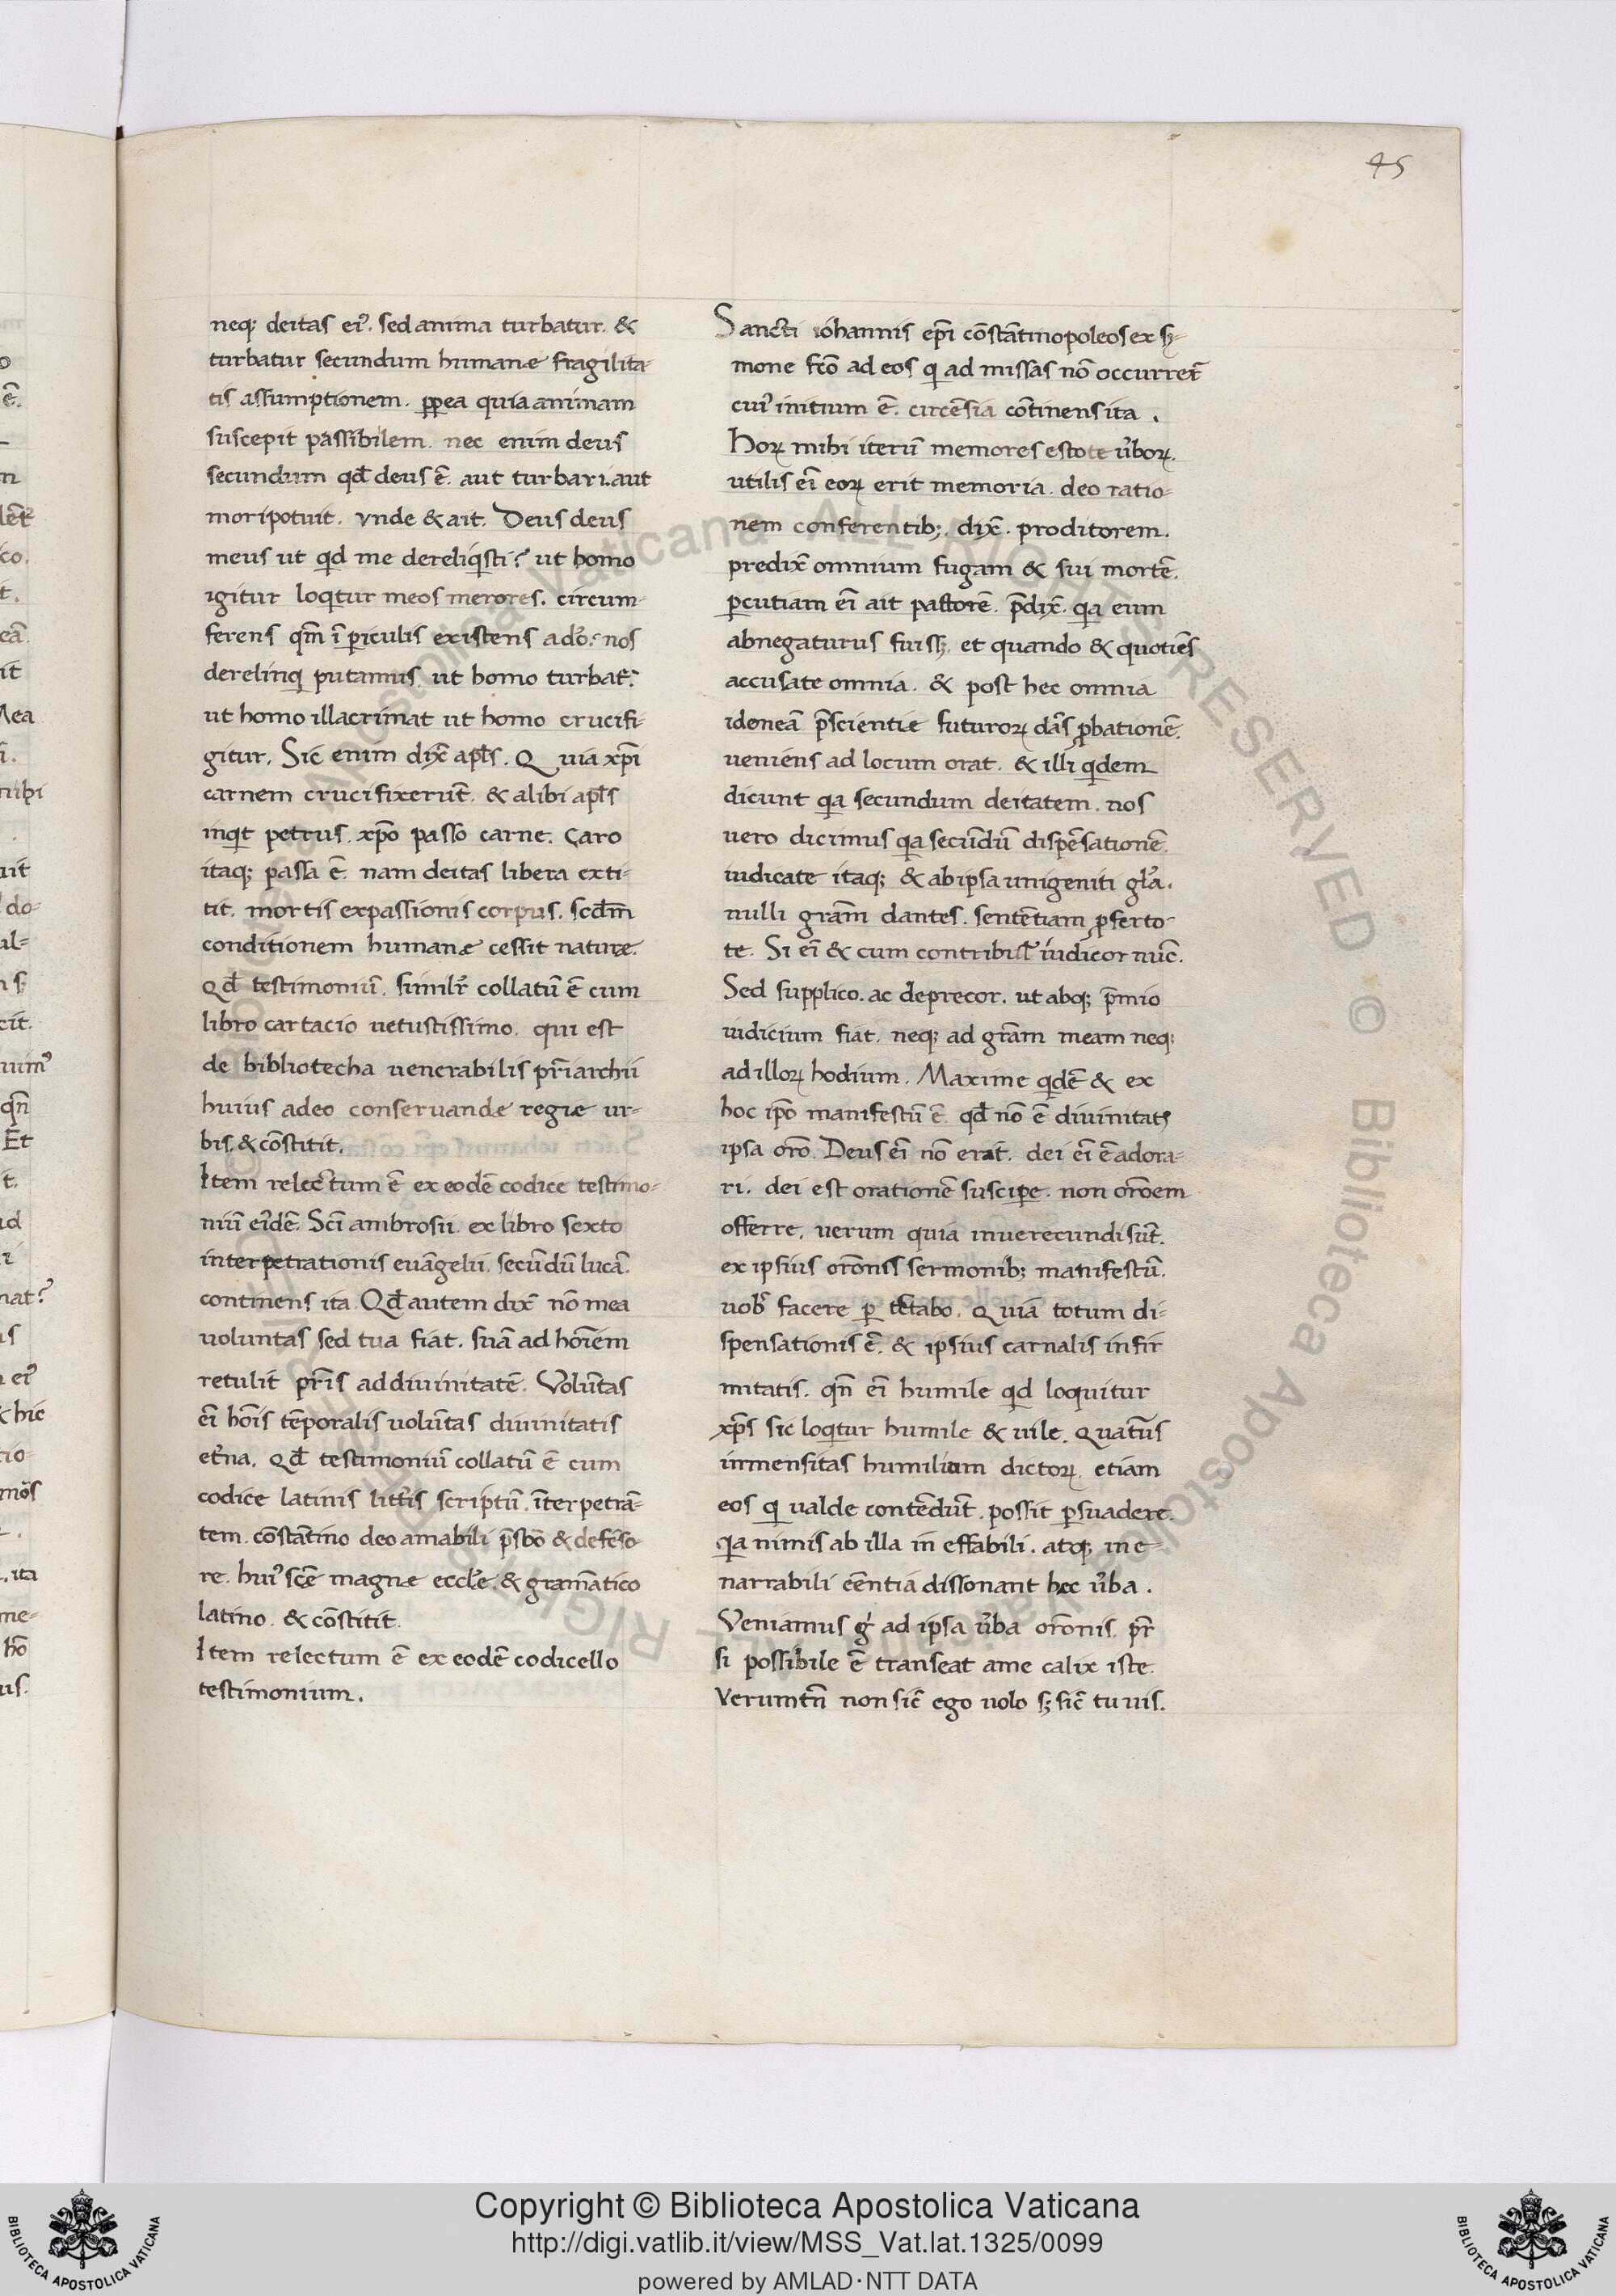 45
neq; deitas ei᾽. sed anima turbatur. &
turbatur secundum humanæ fragilita-
tis assumptionem. ꝓpea quia animam
suscepit passibilem. nec enim deus
secundum qđ deus ē. aut turbari. aut
mori potuit. vnde & ait. Deus deus
meus ut qd me dereliqsti? ut homo
igitur loqtur meos merores. circum-
ferens qm̄ ī ꝑiculis existens a dō. nos
derelinq putamus. ut homo turbat̄.
ut homo illacrimat ut homo crucifi-
gitur. Sic enim dix̄ apl̄s. Quia xp̄i
carnem crucifixerūt. & alibi apl̄s
inqt petrus. xp̄o passo carne. Caro
itaq; passa ē. nam deitas libera exti-
tit. mortis expassionis corpus. scd̄m
conditionem humanæ cessit naturæ.
Qđ testimoniū. similr̄ collatū ē cum
libro cartacio uetustissimo. qui est
de bibliotecha uenerabilis pr̄iarchii
huius adeo conseruandæ regiæ ur-
bis. & cōstitit.
Item relectum ē ex eodē codice testimo-
niū ei᾽dē. Scī ambrosii. ex libro sexto
interpetrationis euāgelii. secūdū lucā.
continens ita. Qđ autem dix̄ nō mea
uoluntas sed tua fiat. suā ad hoīem
retulit pr̄is ad diuinitatē. Volūtas
eī hoīs tēporalis uolūtas diuinitatis
et᾽na. Qđ testimoniū collatū ē cum
codice latinis litt᾽is scriptū. īterpetrā-
tem. cōstātino deo amabili pr̄sbō & defēso-
re. hui᾽ scē magnæ eccl̄e. & gram̄atico
latino. & cōstitit.
Item relectum ē ex eodē codicello
testimonium.
Sancti iohannis ep̄i cōstātinopoleos ex s̄-
mone fcō ad eos q ad missas nō occurrer̄
cui᾽ initium ē. circēsia cōtinens ita.
Hoꝝ mihi iterū memores estote u᾽boꝝ.
utilis eī eoꝝ erit memoria. deo ratio-
nem conferentib;. dix̄. proditorem.
predix̄ omnium fugam & sui mortē.
ꝑcutiam eī ait pastorē. p̄dix̄. qa eum
abnegaturus fuiss;. et quando & quotiēs
accusate omnia. & post hec omnia
idoneā p̄scientiæ futuroꝝ dās ꝓbationē.
ueniens ad locum orat. & illi qdem
dicunt qa secundum deitatem. nos
uero dicimus qa secūdū dispēsationē.
iudicate itaq; & ab ipsa unigeniti gl᾽a.
nulli gram̄ dantes. sentētiam ꝓferto-
te. Si eī & cum contribul᾽ iudicor nūc.
Sed supplico. ac deprecor. ut abq; p̄mio
iudicium fiat. neq; ad gram̄ meam neq;
ad illoꝝ hodium. Maxime qdē & ex
hoc ip̄o manifestū ē. qđ nō ē diuinitatꝭ
ipsa orō. Deus eī nō erat̄. dei eī ē adora-
ri. dei est orationē suscipe. non orōem
offerre. uerum quia inuerecundi sūt.
ex ipsius orōnis sermonib; manifestū.
uob᾽ facere ꝑ tētabo. Quia totum di-
spensationis ē. & ipsius carnalis infir
mitatis. qn̄ eī humile qd loquitur
xp̄s sic loqtur humile & uile. Quatēs
inmensitas humilium dictoꝝ. etiam
eos q ualde contēdūt. possit ꝑsuadere.
qa nimis ab illa in effabili. atq; ine-
narrabili eēntia dissonant hec u᾽ba.
Veniamus g̊ ad ipsa u᾽ba orōnis. pr̄
si possibile ē transeat ame calix iste.
Verumtn̄ non sic̄ ego uolo s; sic̄ tu uis.
Copyright © Biblioteca Apostolica Vaticana
http://digi.vatlib.it/view/MSS_Vat.lat.1325/0099
powered by AMLAD·NTT DATA
BIBLIOTECA APOSTOLICA VATICANA
BIBLIOTECA APOSTOLICA VATICANA